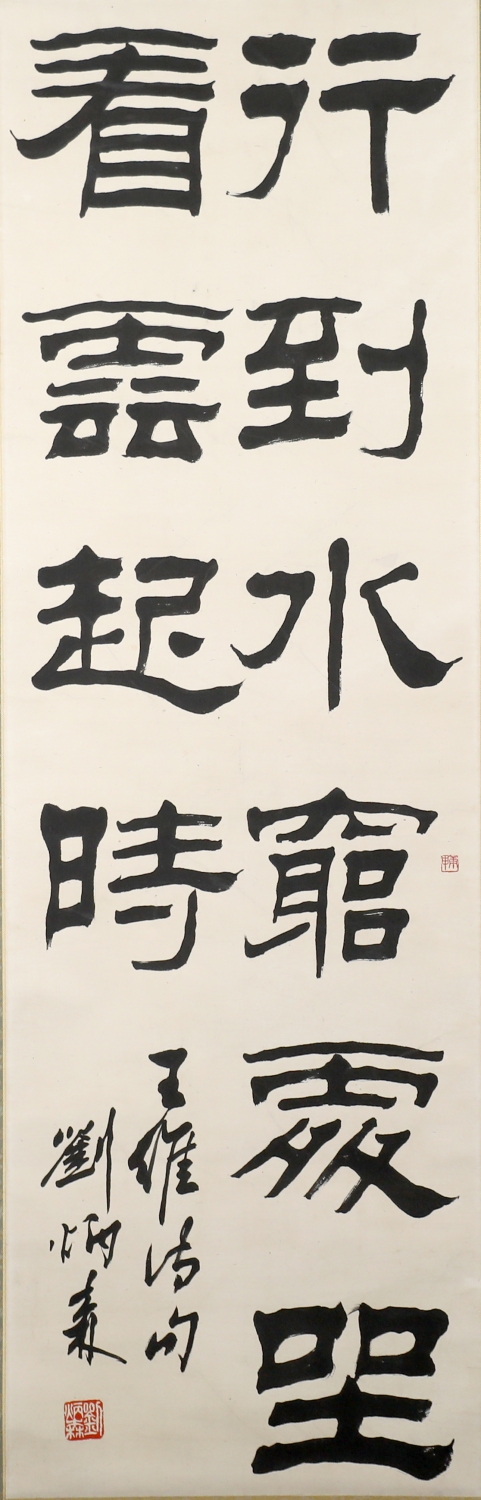 行到水窮處坐
看雲起時
王維詩句
劉炳森
劉炳森